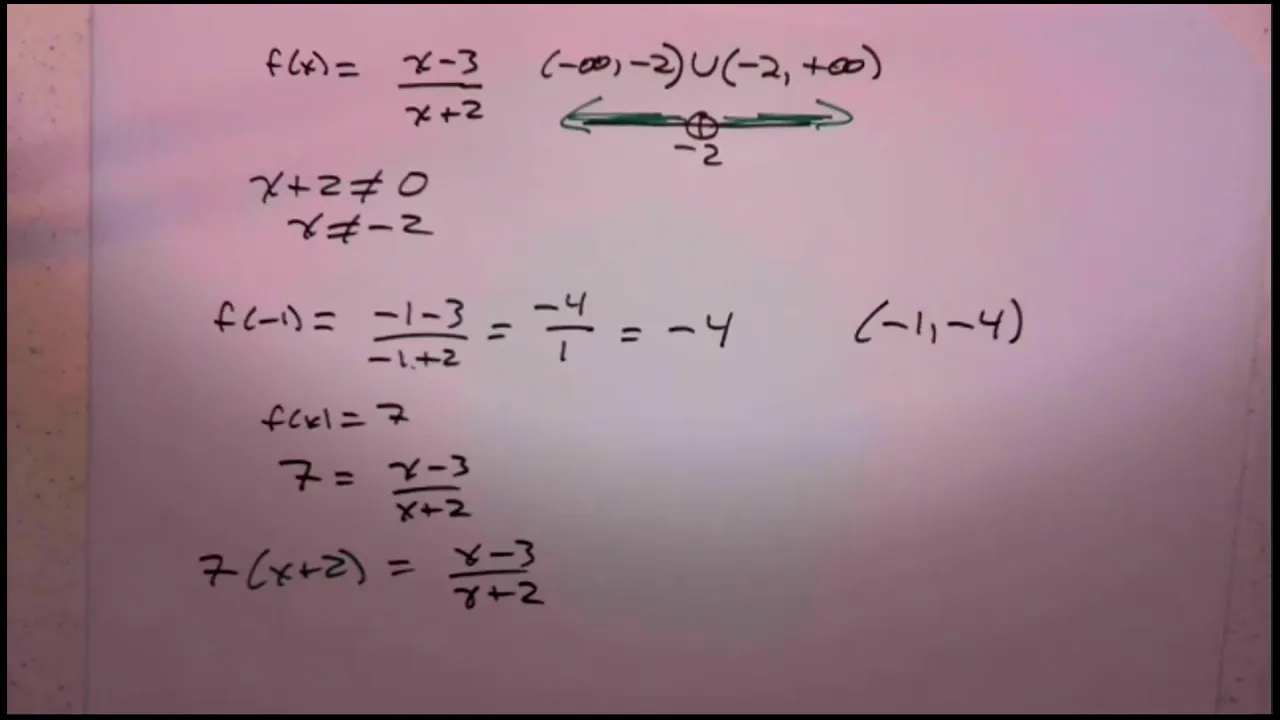 f(x) = x-3/x+2 (-∞, -2) ∪ (-2, +∞)
-2
x+2 ≠ 0
x ≠ -2
f(-1) = -1-3/-1+2 = -4/1 = -4 (-1, -4)
f(x) = 7
7 = x-3/x+2
7(x+2) = x-3/x+2